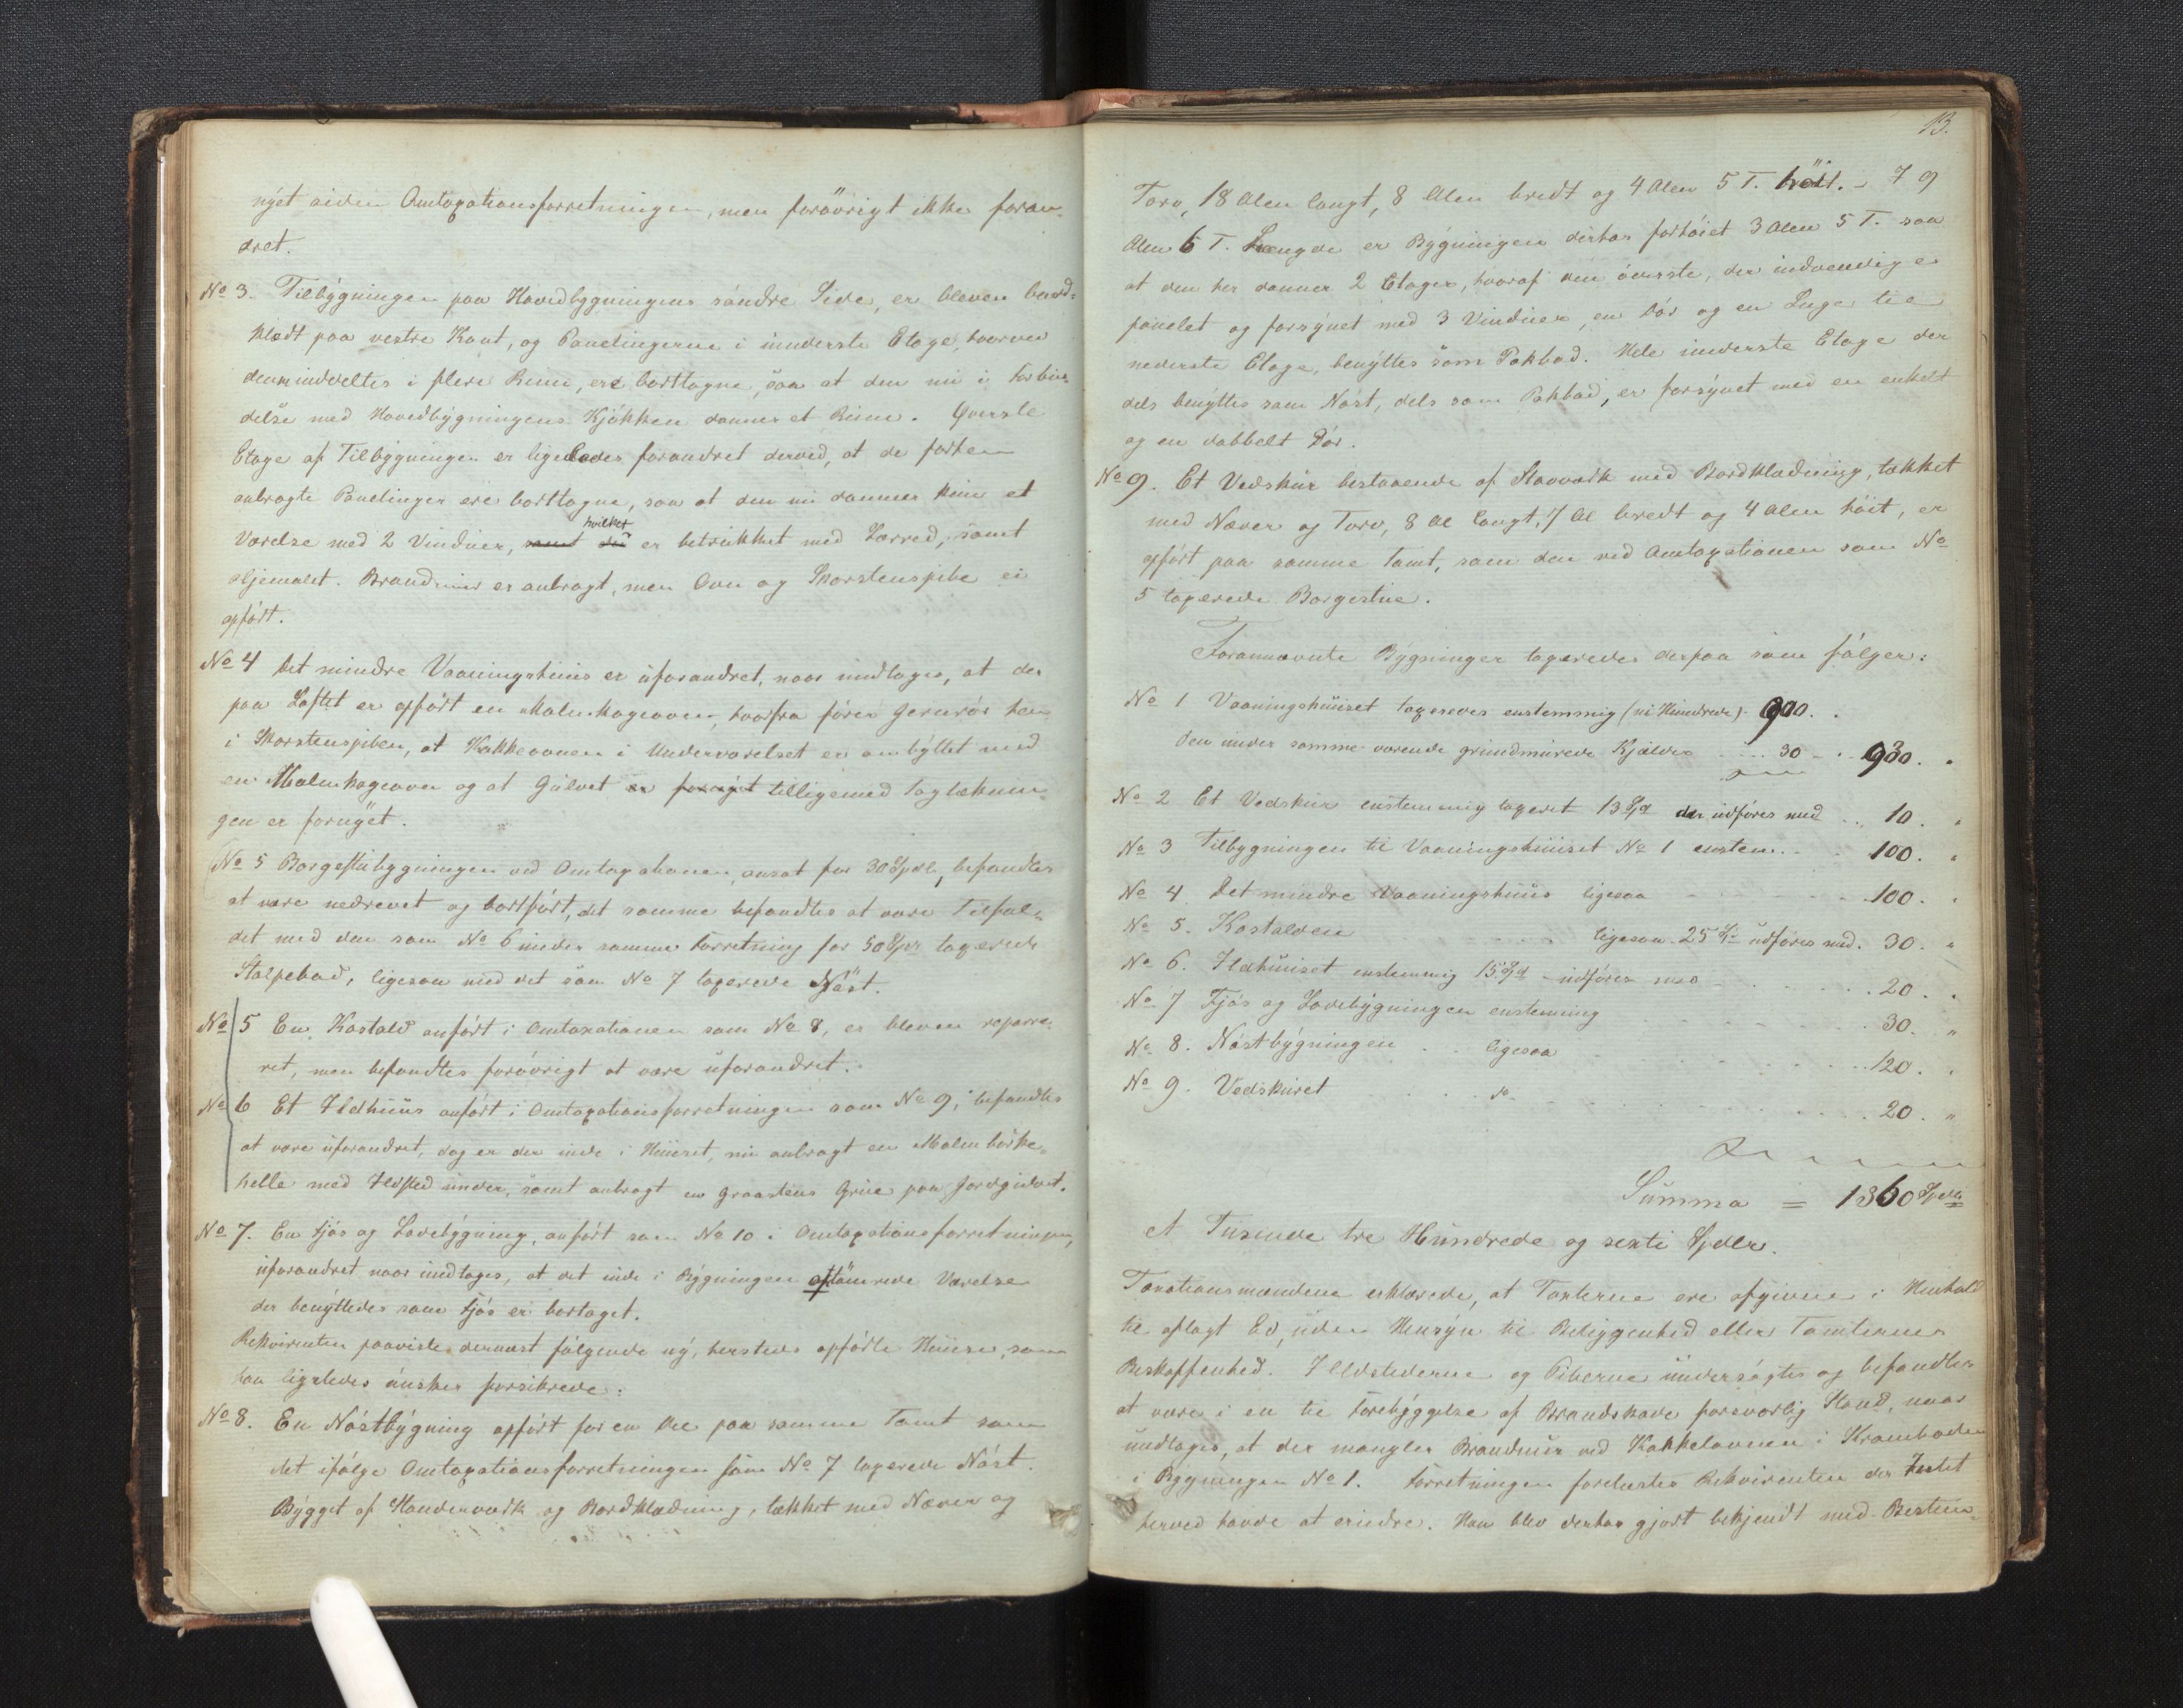 nÿet siden Omtaxationsforretningen, men forøvrigt ikke foran-
dret.
No 3. Tilbÿgningen paa Hovedbygningens søndre Side, er bleven bord-
klædt paa vestre Kant, og Panelingerne i underste Etage, hvorved
den inddeltes i flere Rum, ere borttagne, saa at den nu i Forbin-
delse med Hovedbÿgningens Kjøkken danner et Rum. Øverste
Etage af Tilbÿgningen er ligeledes forandret derved, at de forhen
anbragte Panelinger ere borttagne, saa at den nu danner kun et
Værelse med 2 Vinduer, samt der hvilket er betrukket med Lærred, samt
oljemalet. Brandmur er anbragt, men Ovn og Skorstenspibe ei
opført.
No 4 Det mindre Vaaningshuus er uforandret, naar undtages, at der
paa Loftet er opført en Malm Kogeovn, hvorfra fører Jernrør hen
i Skorstenspiben, at Kakkelovnen i Underværelset er ombÿttet med
en Malm Kogeovn og at Gulvet er fornÿet tilligemed Tagtæknin-
gen er fornÿet.
No 5 Borgestubygningen ved Omtaxationen ansat for 30 Spdlr, befandtes
at være nedrevet og bortført, det samme befandtes at være Tilfæl-
det med den som No 6 under samme Forretning for 50 Spdr taxerede
Stolpebod, ligesaa med det som No 7 taxerede Nøst.
No 5 En Kostald anført i Omtaxationen som No 8, er bleven reparre-
ret, men befandtes forøvrigt at være uforandret.
No 6 Et Ildhuus anført i Omtaxationsforretningen som No 9, befandtes
at være uforandret, dog er der inde i Huuset, nu anbragt en Malm börke-
helle med Ildsted under, samt anbragt en Graasteens Grue paa Jordgulvet.
No 7. En Fjøs og Ladebÿgning, anført som No 10 i Omtaxationsforretningen,
uforandret naar undtages, at det inde i Bÿgningen aftömrede Værelse
der benÿttedes som Fjøs er bortaget.
Rekvirenten paaviste dernæst følgende nÿ, hersteds opførte Huuse, som
han ligeledes ønsker forsikrede:
No 8. En Nøstbÿgning opført for en Del paa samme Tomt som
det ifølge Omtaxationsforretningen som No 7 taxerede Nøst.
Bÿgget af Standerværk og Bordklædning, tækket med Næver og
13.
Torv, 18 Alen langt, 8 Alen bredt og 4 Alen 5 T. höit. - I 9
Alen 6 T. Længde er Bÿgningen derhos forhøiet 3 Alen 5 T. saa
at den her danner 2 Etager, hvoraf den øverste, der indvendig er
panelet og forsÿnet med 3 Vinduer, en Dør og en Luge til
nederste Etage, benÿttes som Pakbod. Hele underste Etage der
dels benÿttes som Nøst, dels som Pakbod, er forsÿnet med en enkelt
og en dobbelt Dør.
No 9. Et Vedskur bestaaende af Stavværk med Bordklædning, tækket
med Næver og Torv, 8 Al langt, 7 Al bredt og 4 Alen høit, er
opført paa samme Tomt, som den ved Omtaxationen som No
5 taxerede Borgestue.
Forannævnte Bÿgninger taxeredes derpaa som følger:
No 1 Vaaningshuuset taxeredes enstemmig (ni Hundrede) 900.
den under samme værende grundmurede Kjælder 30 930.
No 2 Et Vedskur enstemmig taxeret 13 Spd der udføres med 10.
No 3 Tilbygningen til Vaaningshuuset No 1 enstem. 100.
No 4. Det mindre Vaaningshuus ligesaa 100.
No 5. Kostalden ligesaa 25 Sp udføres med. 30.
No 6. Ildhuuset enstemmig 15 Spd udføres med 20.
No 7 Fjøs og Ladebÿgningen enstemmig 30.
No 8. Nøstbÿgningen ligesaa 120.
No 9. Vedskuret do 20.
Summa = 1360 Spdlr
et Tusinde tre Hundrede og sexti Spdlr.
Taxationsmændene erklærede, at Taxterne ere afgivne i Henhold
til aflagt Ed, uden Hensÿn til Beliggenhed eller Tomternes
Beskaffenhed. Ildstederne og Piberne undersøgtes og befandtes
at være i en til Forebÿggelse af Brandskade forsvarlig Stand, naar
undtages, at der mangler Brandmur ved Kakkelovnen i Kramboden
i Bÿgningen No 1. Forretningen forelæstes Rekvirenten der Intet
herved havde at erindre. Han blev derhos gjort bekjendt med Bestem-